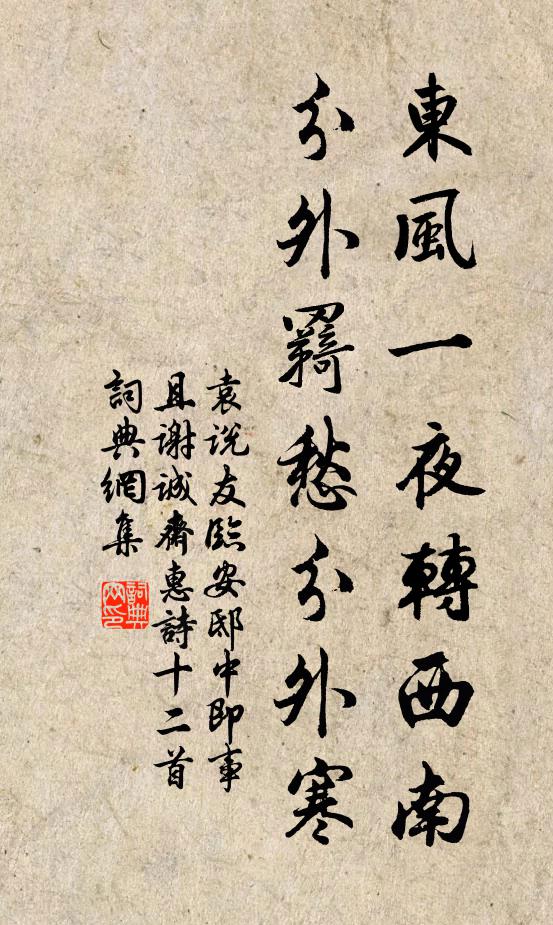 東風一夜轉西南
分外羈愁分外寒
袁说友臨安邸中即事
且谢诚齋惠詩十二首
詞典網集
詞典
网印